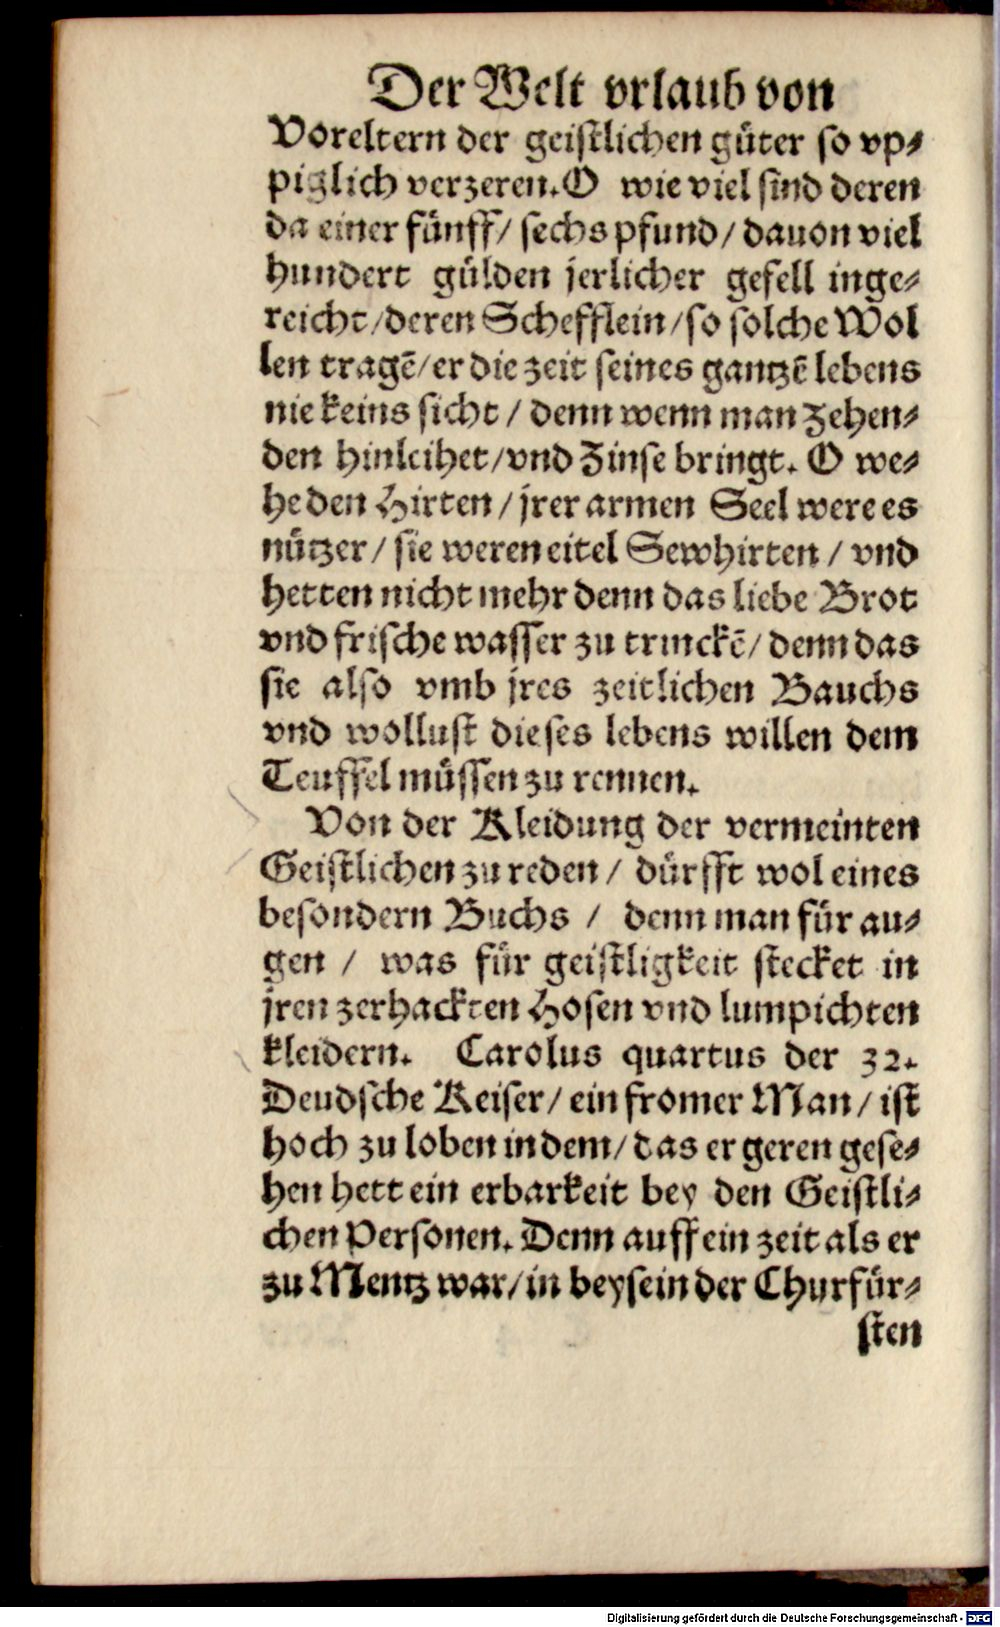 Der Welt vrlaub von
Voreltern der geistlichen güter so vp-
piglich verzeren. O wie viel sind deren
da einer fünff/ sechs pfund/ dauon viel
hundert gülden jerlicher gefell inge-
reicht/deren Schefflein/so solche Wol
len tragē/er die zeit seines gantzē lebens
nie keins sicht/ denn wenn man Zehen-
den hinleihet/vnd Zinse bringt. O we-
he den Hirten/jrer armen Seel were es
nützer/ sie weren eitel Sewhirten/ vnd
hetten nicht mehr denn das liebe Brot
vnd frische wasser zu trinckē/ denn das
sie also vmb jres zeitlichen Bauchs
vnd wollust dieses lebens willen dem
Teuffel müssen zu rennen.
Von der Kleidung der vermeinten
Geistlichen zu reden/ dürfft wol eines
besondern Buchs/ denn man für au-
gen/ was für geistligkeit stecket in
jren zerhackten Hosen vnd lumpichten
kleidern. Carolus quartus der 32.
Deudsche Keiser/ ein fromer Man/ ist
hoch zu loben in dem/ das er geren gese-
hen hett ein erbarkeit bey den Geistli-
chen Personen. Denn auff ein zeit als er
zu Mentz war/in beysein der Churfür-
sten
Digitalisierung gefördert durch die Deutsche Forschungsgemeinschaft - DFG